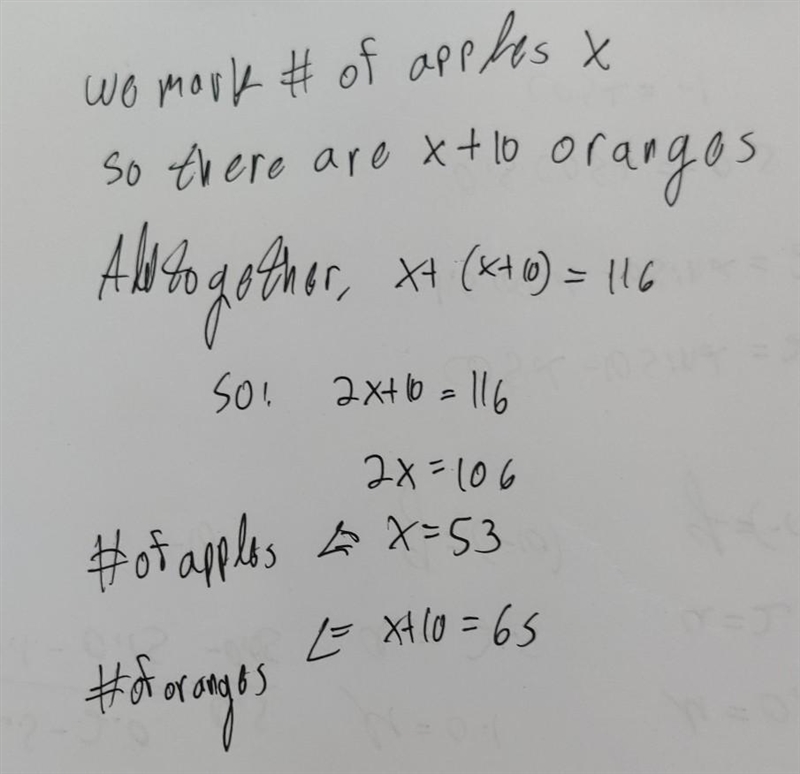 we mark # of apples x
so there are x+10 oranges
Alltogether, x+ (x+10) = 116
so: 2x+10 = 116
2x = 106
# of apples ⇐ x = 53
# of oranges ⇐ x+10 = 65